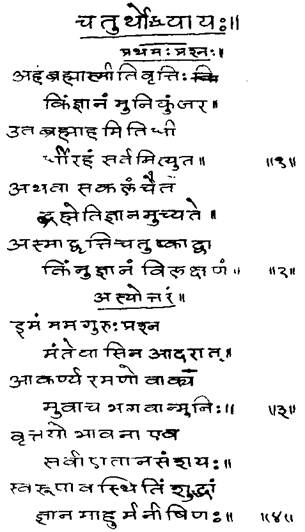 चतुर्थोऽध्यायः॥
प्रथमः प्रश्नः॥
अहंब्रह्मास्मीतिवृत्तिः
किंज्ञानं मुनिकुंजर।
उत ब्रह्माहमिति धी
र्धीरहं सर्वमित्युत॥ ॥१॥
अथवा सकलंचैत
द्ब्रह्मेतिज्ञानमुच्यते।
अस्माद्वृत्तिचतुष्काद्वा
किंनुज्ञानं विलक्षणं॥ ॥२॥
अस्योत्तरं॥
इमं मम गुरुः प्रश्न
मंतेवासिन आदरात्।
आकर्ण्य रमणो वाक्य
मुवाच भगवान्मुनिः॥ ॥३॥
वृत्तयो भावना एव
सर्वा एता न संशयः॥
स्वरूपावस्थितिं शुद्धां
ज्ञानमाहुर्मनीषिणः॥ ॥४॥